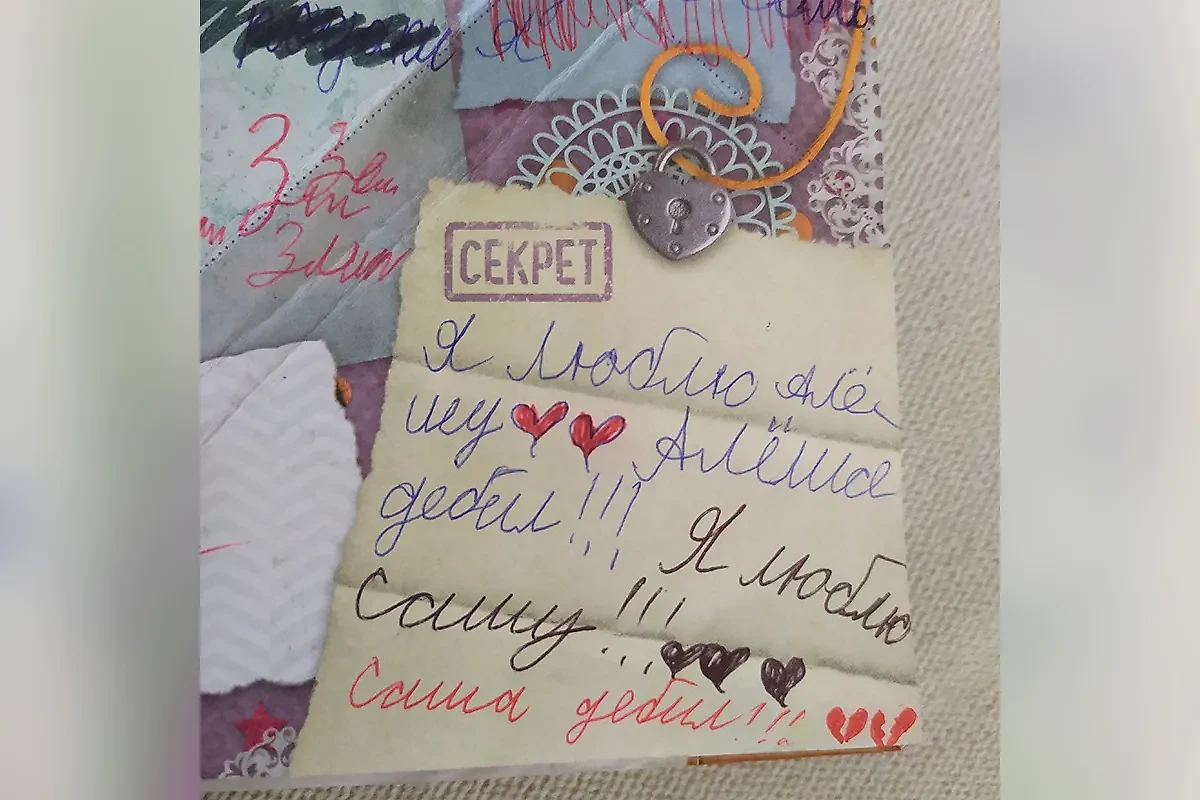 З Зам
Злат
СЕКРЕТ
Я люблю Алё
шу Алёша
дебил!!! Я люблю
Сашу!!!
Саша дебил!!!